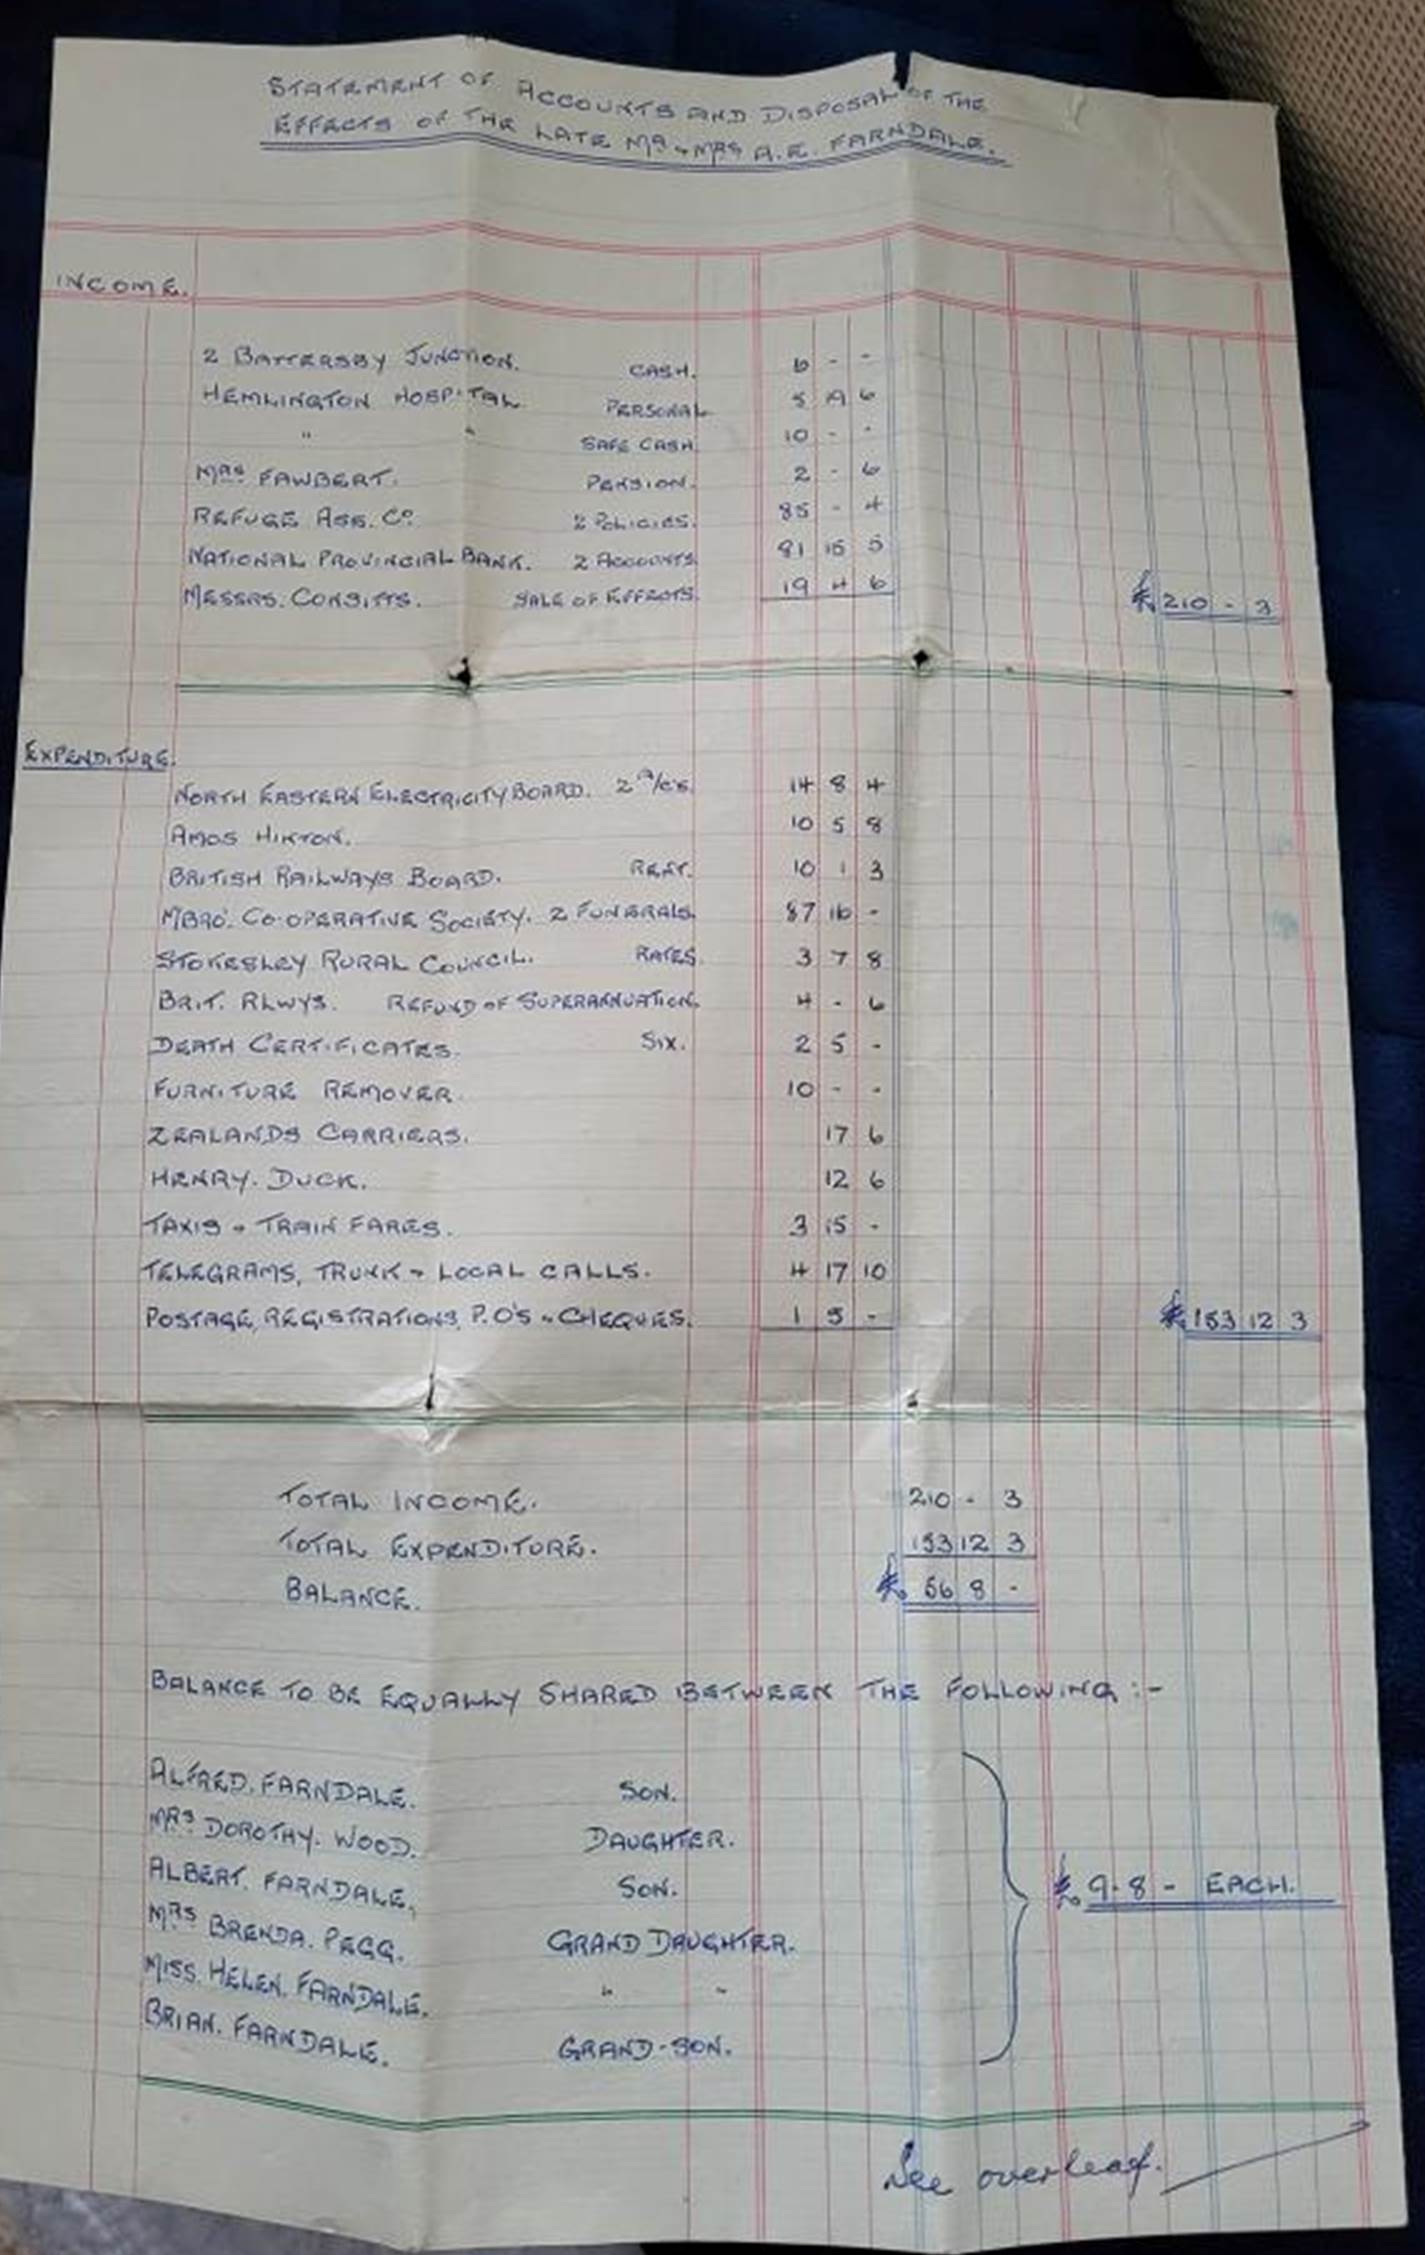 STATEMENT OF ACCOUNTS AND DISPOSAL OF THE
EFFECTS OF THE LATE MR & MRS A.E. FARNDALE.
INCOME.
2 BATTERSBY JUNCTION. CASH. 6 - -
HEMLINGTON HOSPITAL PERSONAL 5 19 6
" " SAFE CASH. 10 - -
MRS FAWBERT. PENSION. 2 - 6
REFUGE ASS. CO. 2 POLICIES. 85 - 4
NATIONAL PROVINCIAL BANK. 2 ACCOUNTS 81 15 5
MESSRS. CONSITTS. SALE OF EFFECTS. 19 4 6 £ 210 - 3
EXPENDITURE.
NORTH EASTERN ELECTRICITY BOARD. 2 A/C'S. 14 8 4
AMOS HINTON. 10 5 8
BRITISH RAILWAYS BOARD. RENT. 10 1 3
M'BRO'. CO-OPERATIVE SOCIETY. 2 FUNERALS. 87 16 -
STOKESLEY RURAL COUNCIL. RATES. 3 7 8
BRIT. RLWYS. REFUND OF SUPERANNUATION. 4 - 6
DEATH CERTIFICATES. SIX. 2 5 -
FURNITURE REMOVER. 10 - -
ZEALANDS CARRIERS. 17 6
HENRY. DUCK. 12 6
TAXIS & TRAIN FARES. 3 15 -
TELEGRAMS, TRUNK & LOCAL CALLS. 4 17 10
POSTAGE, REGISTRATIONS, P.O'S & CHEQUES. 1 5 - £ 153 12 3
TOTAL INCOME. 210 - 3
TOTAL EXPENDITURE. 153 12 3
BALANCE. £ 56 8 -
BALANCE TO BE EQUALLY SHARED BETWEEN THE FOLLOWING :-
ALFRED. FARNDALE. SON.
MRS DOROTHY. WOOD. DAUGHTER.
ALBERT. FARNDALE. SON. £ 9.8 - EACH.
MRS BRENDA. PEGG. GRAND DAUGHTER.
MISS. HELEN. FARNDALE. " "
BRIAN. FARNDALE. GRAND-SON.
See overleaf.